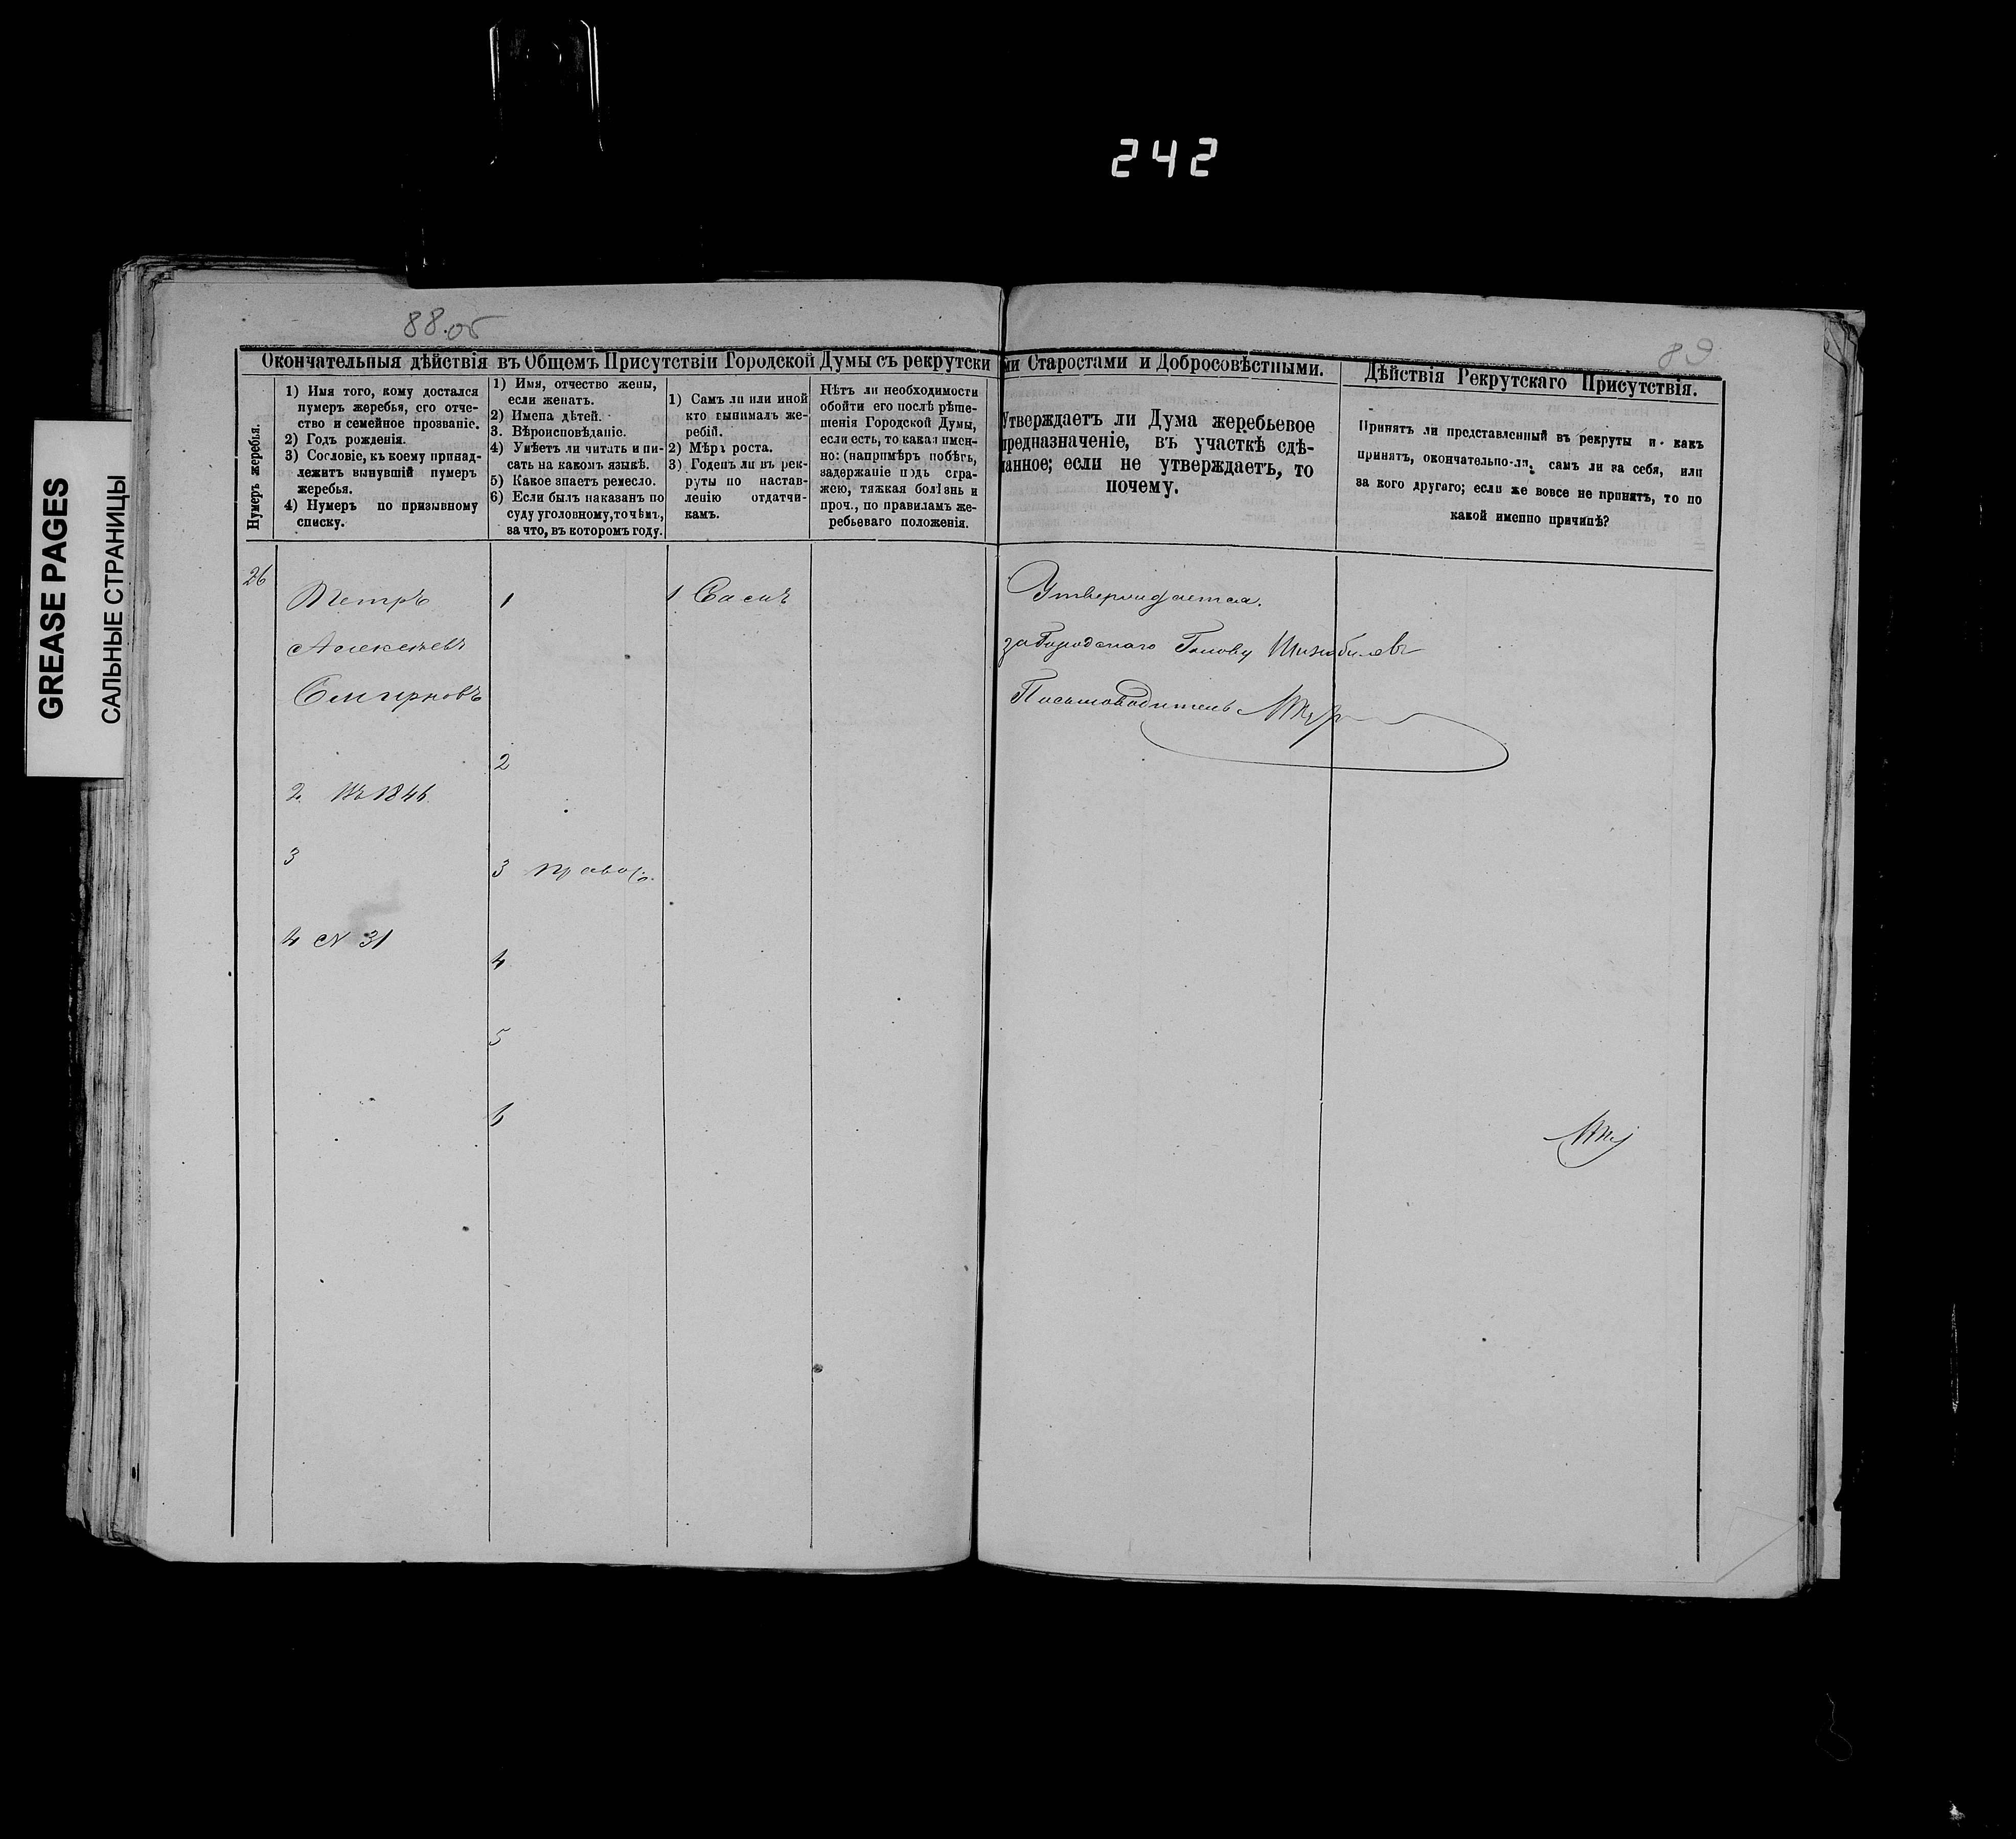 242
GREASE PAGES
САЛЬНЫЕ СТРАНИЦЫ
88.об
89
Окончательныя дѣйствія въ Общемъ Присутствіи Городской Думы съ рекрутски
ми Старостами и Добросовѣстными.
Дѣйствія Рекрутскаго Присутствія.
Нумеръ жеребья.
1) Имя того, кому достался
нумеръ жеребья, его отче-
ство и семейное прозваніе.
2) Годъ рожденія.
3) Сословіе, къ коему принад-
лежитъ вынувшій нумеръ
жеребья.
4) Нумеръ по призывному
списку.
1) Имя, отчество жены,
если женатъ.
2) Имена дѣтей.
3. Вѣроисповѣданіе.
4) Умѣетъ ли читать и пи-
сать на какомъ языкѣ.
5) Какое знаетъ ремесло.
6) Если былъ наказанъ по
суду уголовному, то чѣмъ,
за что, въ которомъ году.
1) Самъ ли или иной
кто вынималъ же-
ребій.
2) Мѣра роста.
3) Годенъ ли въ рек-
руты по настав-
ленію отдатчи-
камъ.
Нѣтъ ли необходимости
обойти его послѣ рѣше-
шенія Городской Думы,
если есть, то какая имен-
но: (напримѣръ побѣгъ,
задержаніе подъ стра-
жею, тяжкая болѣзнь и
проч., по правиламъ же-
ребьеваго положенія.
Утверждаетъ ли Дума жеребьевое
предназначеніе, въ участкѣ сдѣ-
ланное; если не утверждаетъ, то
почему.
Принятъ ли представленный въ рекруты и какъ
принятъ, окончательно-ли, самъ ли за себя, или
за кого другаго; если же вовсе не принятъ, то по
какой именно причинѣ?
26
Петръ
Алексѣевъ
Смирновъ
2. Въ 1846
3
4 N 31
1
2
3 Правос.
4
5
6
1 Самъ
Утверждается.
за Городскаго Голову
Письмоводитель